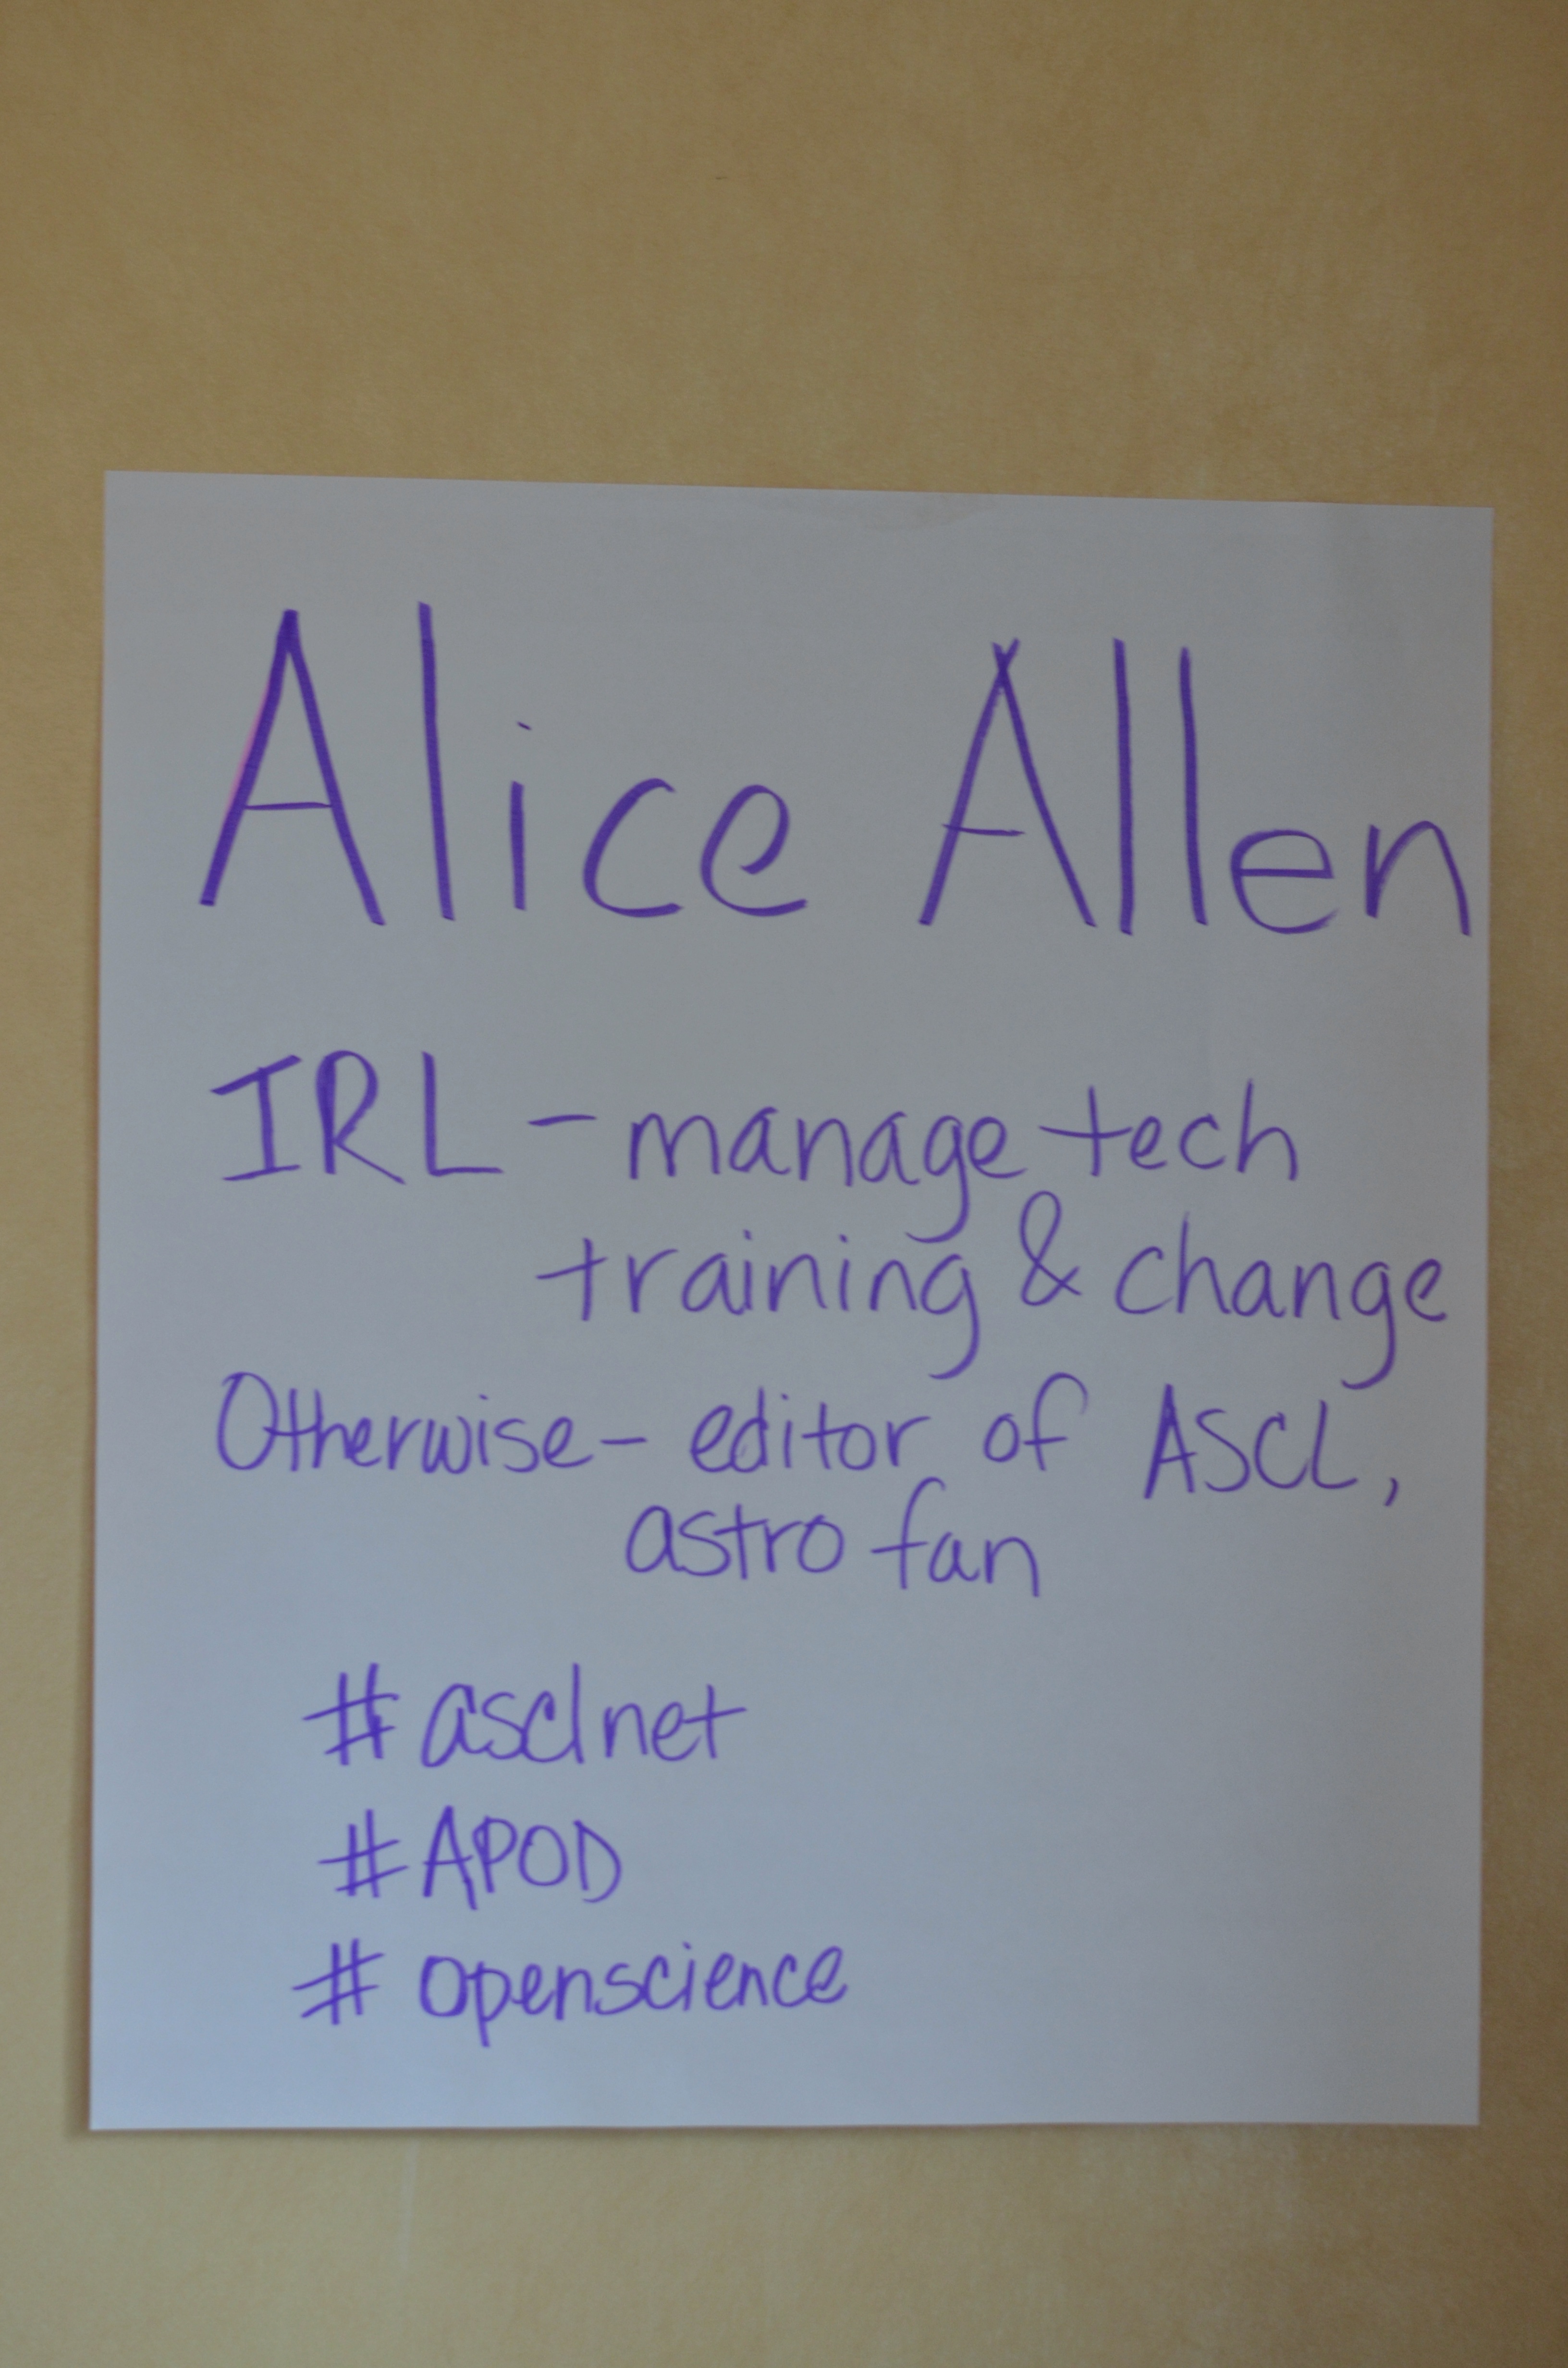 Alice Allen
IRL - manage tech
training & change
Otherwise - editor of ASCL,
astro fan
# asclnet
# APOD
# openscience